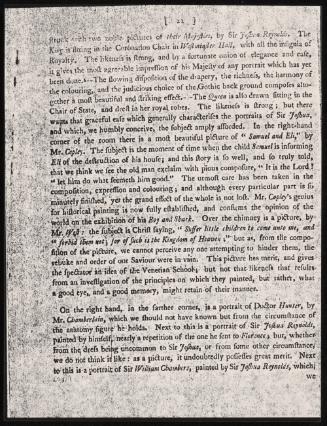 [ 22 ]
struck with two noble pictures of their Majesties, by Sir Joshua Reynolds. The
King is sitting in the Coronation Chair in Westminster Hall, with all the insignia of
Royalty. The likeness is strong, and by a fortunate union of elegance and ease,
it gives the most agreeable impression of his Majesty of any portrait which has yet
been done.—The flowing disposition of the drapery, the richness, the harmony of
the colouring, and the judicious choice of the Gothic back ground composes altogether
a most beautiful and striking effect.—The Queen is also drawn sitting in the
Chair of State, and drest in her royal robes. The likeness is strong; but there
wants that graceful ease which generally characterises the portraits of Sir Joshua,
and which, we humbly conceive, the subject amply afforded. In the right-hand
corner of the room there is a most beautiful picture of " Samuel and Eli," by
Mr. Copley. The subject is the moment of time when the child Samuel is informing
Eli of the destruction of his house; and this story is so well, and so truly told,
that we think we see the old man exclaim with pious composure, " It is the Lord!
" let him do what seemeth him good." The utmost care has been taken in the
composition, expression and colouring; and although every particular part is so
minutely finished, yet the grand effect of the whole is not lost. Mr. Copley's genius
for historical painting is now fully established, and confirms the opinion of the
world on the exhibition of his Boy and Shark. Over the chimney is a picture, by
Mr. West: the subject is Christ saying, " Suffer little children to come unto me, and
" forbid them not; for of such is the Kingdom of Heaven;" but as, from the composition
of the picture, we cannot perceive any one attempting to hinder them, the
rebuke and order of our Saviour were in vain. This picture has merit, and gives
the spectator an idea of the Venetian School; but not that likeness that results
from an investigation of the principles on which they painted, but rather, what
a good eye, and a good memory, might retain of their manner.
On the right hand, in the farther corner, is a portrait of Doctor Hunter, by
Mr. Chamberlain, which we should not have known but from the circumstance of
the anatomy figure he holds. Next to this is a portrait of Sir Joshua Reynolds,
painted by himself, nearly a repetition of the one he sent to Florence; but, whether
from the dress being uncommon to Sir Joshua, or from some other circumstance,
we do not think it like: as a picture, it undoubtedly possesses great merit. Next
to this is a portrait of Sir William Chambers, painted by Sir Joshua Reynolds, which
we